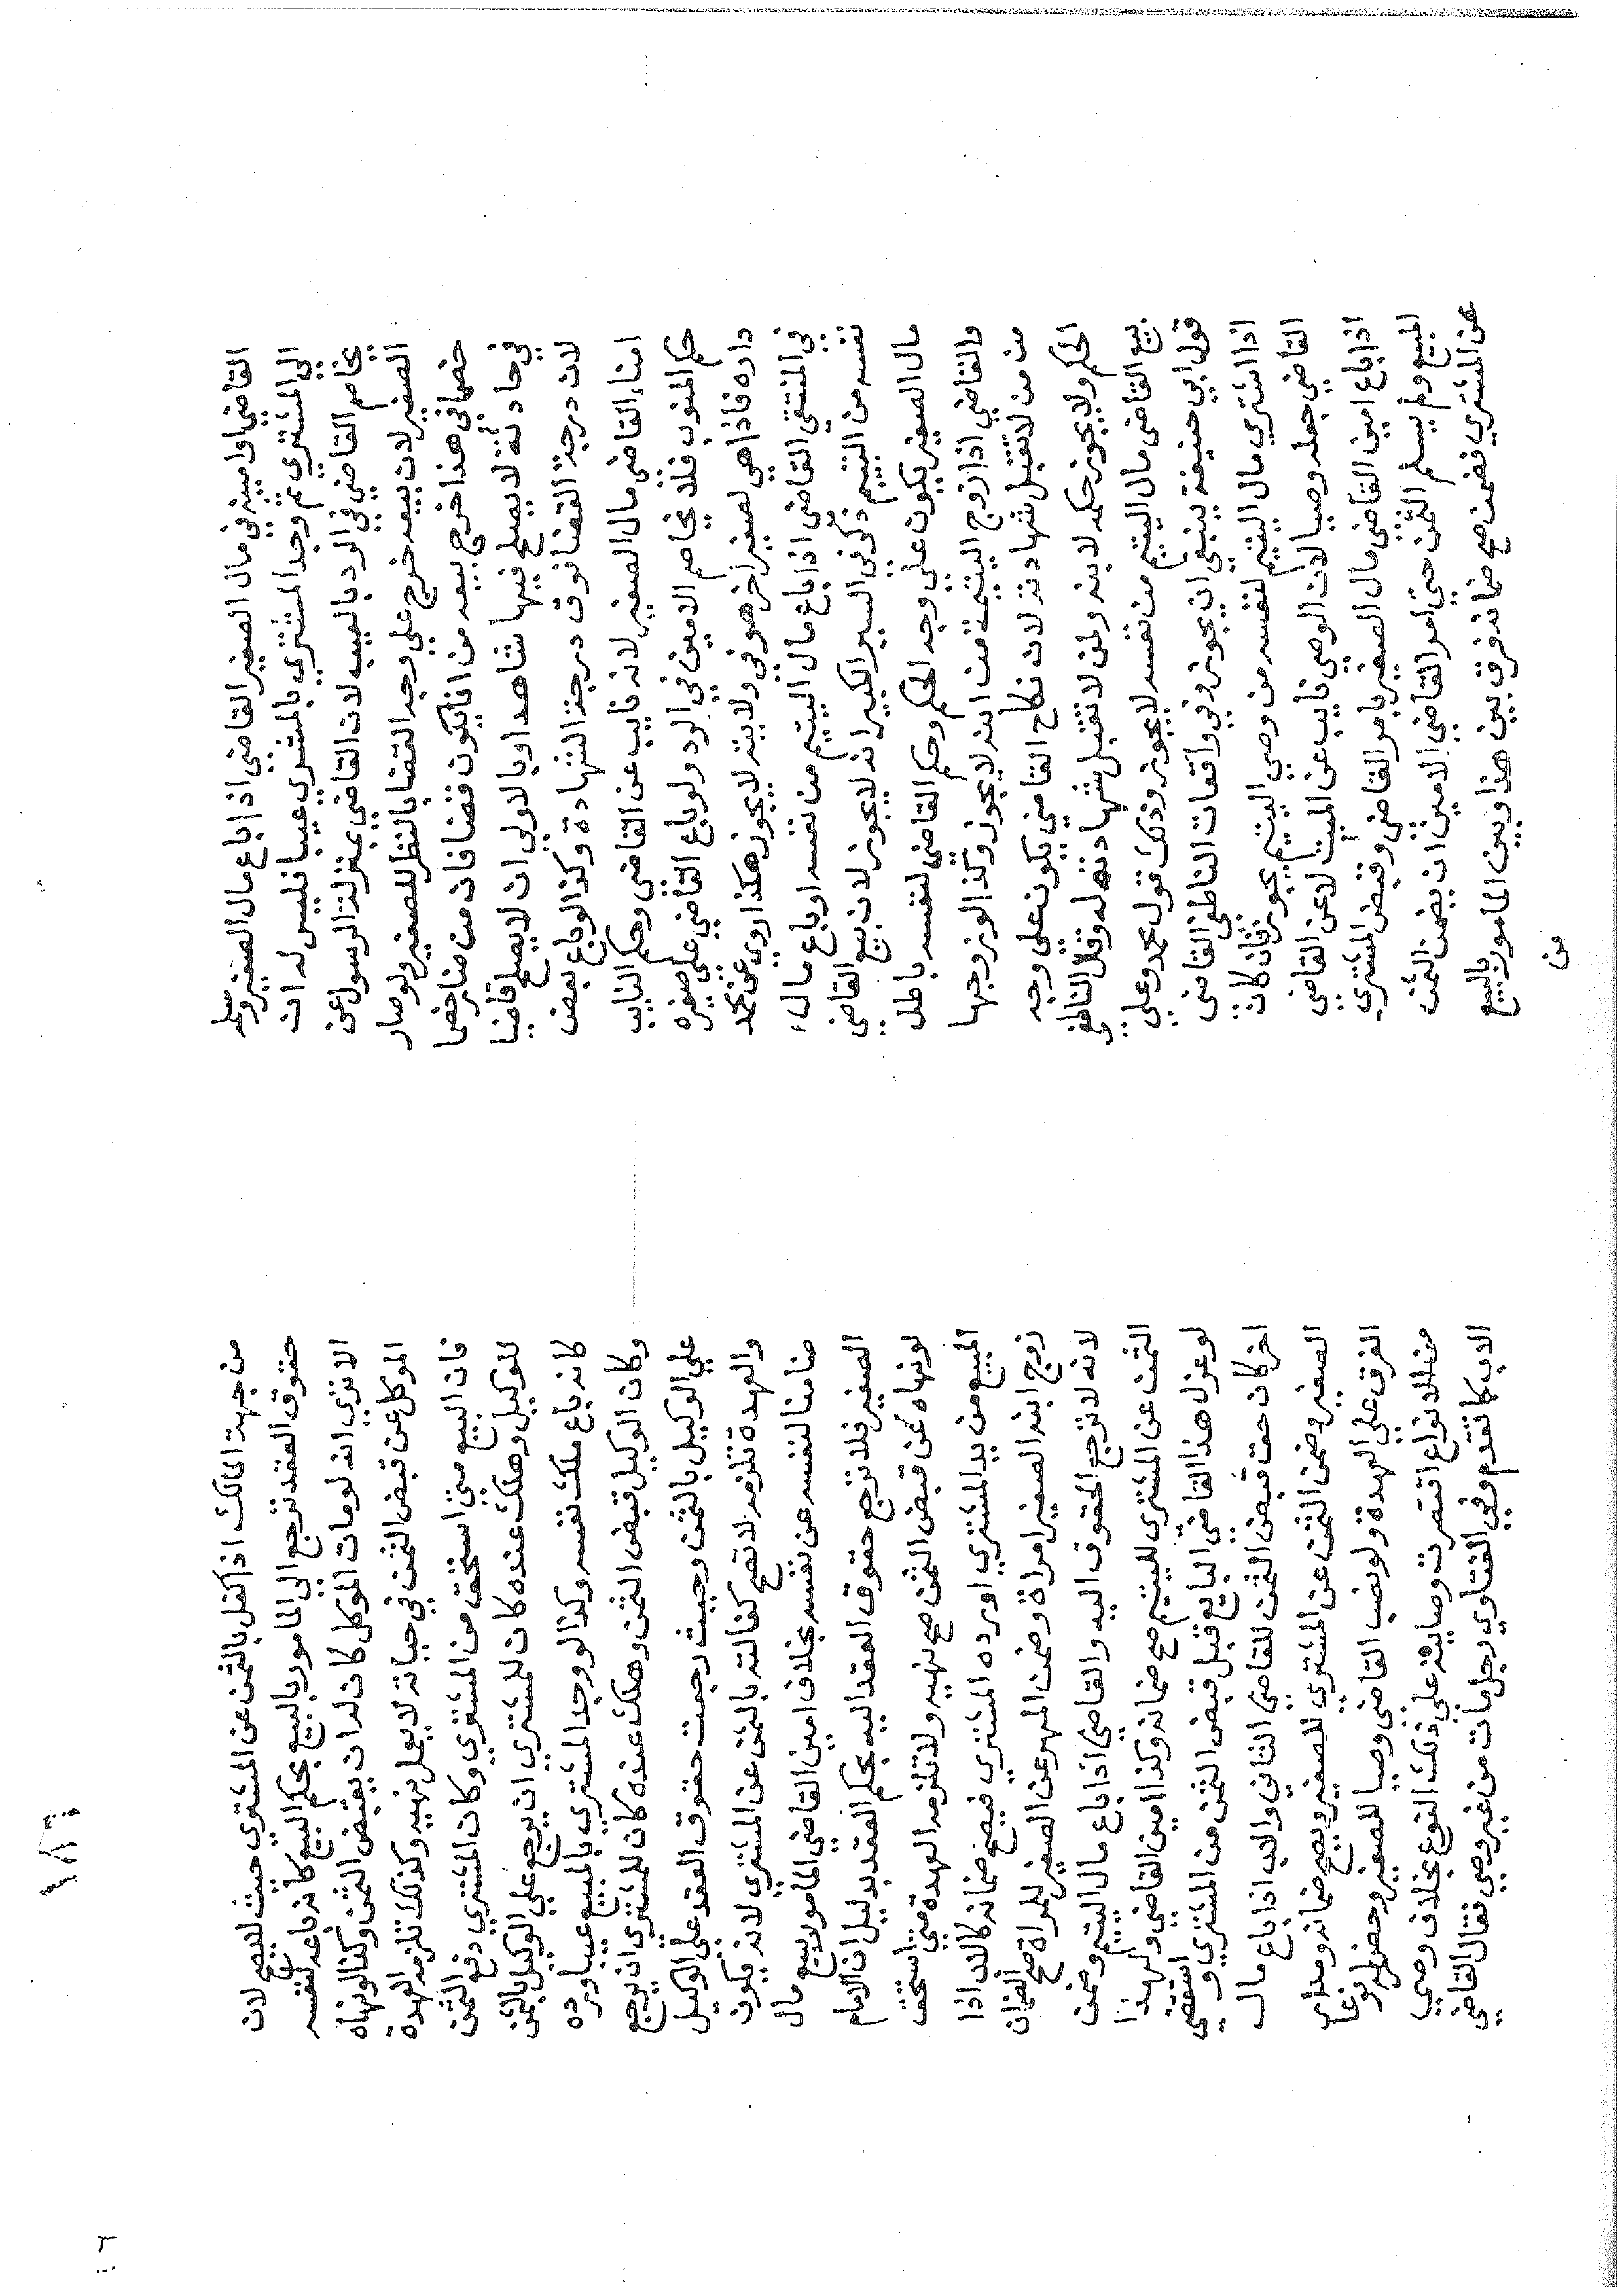 القاضي او امينه في مال الصغير القاضي اذا باع مال الصغير وسلم
الي المشتري ثم وجد المشتري بالمشتري عيبا فليس له ان
يخاصم القاضي في الرد بالعيب لان القاضي بمنزلة الرسول عن
الصغير لان بيعه خرج علي وجه القضا بالنظر للصغير ولو صار
خصما في هذا خرج بيعه من ان يكون قضا فان من صار خصما
في حادثة لا يصلح فيها شاهدا وبالاولي ان لا يصلح قاضيا
لان درجة القضا فوق درجة الشهادة وكذا لو باع بعض
امناء القاضي مال الصغير لانه نايب عن القاضي وحكم النايب
حكم المنوب فلا يخاصم الامين في الرد ولو باع القاضي علي صغيره
داره فاذا هي لصغير اخر هو في ولايته لا يجوز هكذا روي عن محمد
في المنتقي القاضي اذا باع مال اليتيم من نفسه او باع ماله
نفسه من اليتيم ذكر في السير الكبير انه لا يجوز لان بيع القاضي
مال الصغير يكون علي وجه الحكم وحكم القاضي لنفسه باطل
والقاضي اذا زوج اليتيمة من ابنه لا يجوز وكذا لو زوجها
من من لا تقبل شهادته له لان نكاح القاضي يكون علي وجه
الحكم ولا يجوز حكمه لابنه ولمن لا تقبل شهادته له وقال الناطفي
بيع القاضي مال اليتيم من نفسه لا يجوز وذلك قول محمد وعلي
قول ابي حنيفة ينبغي ان يجوز وفي واقعات الناطفي القاضي
اذا اشتري مال اليتيم لنفسه من وصي اليتيم يجوز فان كان
القاضي جعله وصيا لان الوصي نايب عن الميت لا عن القاضي
اذا باع امين القاضي مال الصغير بامر القاضي وقبض المشتري
المبيع ولم يسلم الثمن حتي امر القاضي الامين ان يضمن الثمن
عن المشتري فضمن صح ضمانه فرق بين هذا وبين المامور بالبيع
من
من جهة المالك اذا كفل بالثمن عن المشتري حيث لا يصح لان
حقوق العقد ترجع الي المامور بالبيع بحكم البيع كانه باعه لنفسه
الا تري انه لو مات الموكل كان له ان يقبض الثمن وكذا لو نهاه
الموكل عن قبض الثمن في حياته لا يعمل نهيه وكذلك تلزمه العهدة
فان البيع متي استحق من المشتري وكان المشتري دفع الثمن
للوكيل وهلك عنده كان للمشتري ان يرجع علي الوكيل بالثمن
كانه باع ملك نفسه وكذا لو وجد المشتري بالمبيع عيبا ورده
وكان الوكيل قبض الثمن وهلك عنده كان للمشتري ان يرجع
علي الوكيل بالثمن وحيث رجعت حقوق العقد علي الوكيل
والعهدة تلزمه لا تصح كفالته بالثمن عن المشتري لانه يكون
ضامنا لنفسه عن نفسه بخلاف امين القاضي المامور ببيع مال
الصغير فلا ترجع حقوق العقد اليه بحكم العقد بدليل ان الامام
لو نهاه عن قبض الثمن صح نهيه ولا تلزمه العهدة متي استحق
المبيع من يد المشتري او رده المشتري فيصح ضمانه كالاب اذا
زوج ابنه الصغير امراة وضمن المهر عن الصغير للمراة صح الضمان
لانه لا ترجع الحقوق اليه والقاضي اذا باع مال اليتيم وضمن
الثمن عن المشتري لليتيم صح ضمانه وكذا امين القاضي ولهذا
لو عزل هذا القاضي البايع قبل قبض الثمن من المشتري واستقضي
اخر كان حق قبض الثمن للقاضي الثاني والاب اذا باع مال
الصغير وضمن الثمن عن المشتري للصغير ويصح ضمانه ومدار
الفرق علي العهدة ولو نصب القاضي وصيا للصغير وحضر
من الانواع اقتصرت وصايته علي ذلك النوع بخلاف وصي
الاب كما تقدم وفي الفتاوي رجل مات من غير وصي فقال القاضي